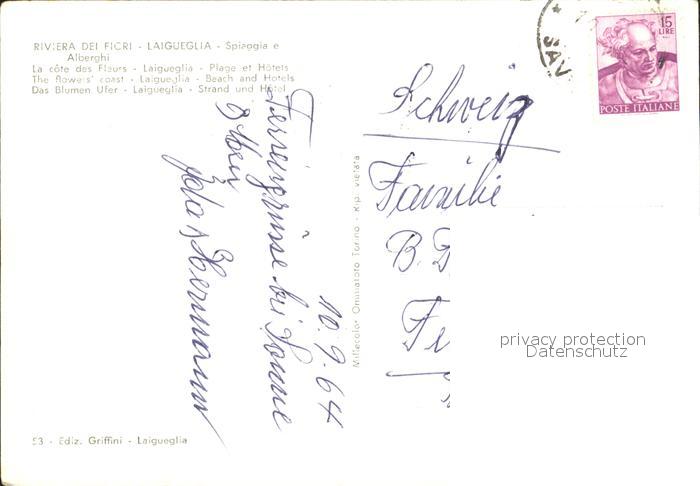 RIVIERA DEI FIORI - LAIGUEGLIA - Spiaggia e
Alberghi
La côte des Fleurs - Laigueglia - Plage et Hôtels
The flowers' coast - Laigueglia - Beach and Hotels
Das Blumen Ufer - Laigueglia - Strand und Hôtel
10. 9. 64
Feriengrüsse bei Sonne
& Meer
Hermann
53 - Ediz. Griffini - Laigueglia
Millecolor Omniafoto Torino - Rip. vietata
15
LIRE
POSTE ITALIANE
SAV
Schweiz
Familie
B.
Fe
privacy protection
Datenschutz